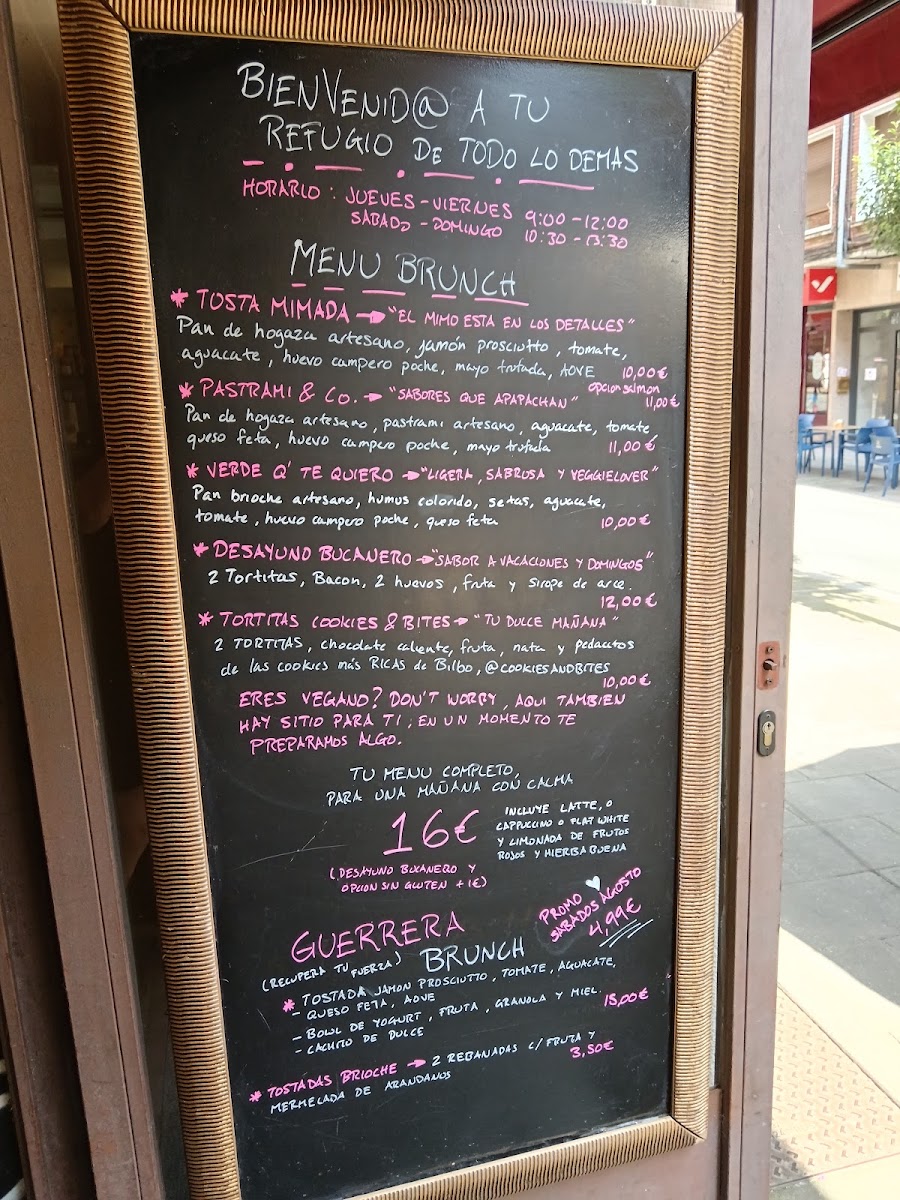 BIENVENID@ A TU
REFUGIO DE TODO LO DEMAS
HORARIO : JUEVES - VIERNES 9:00 - 12:00
SABADO - DOMINGO 10:30 - 13:30
MENU BRUNCH
* TOSTA MIMADA → "EL MIMO ESTA EN LOS DETALLES"
Pan de hogaza artesano, jamón prosciutto, tomate,
aguacate, huevo campero poche, mayo trufada, AOVE 10,00€
opcion salmon
11,00€
* PASTRAMI & CO. → "SABORES QUE APAPACHAN"
Pan de hogaza artesano, pastrami artesano, aguacate, tomate,
queso feta, huevo campero poche, mayo trufada 11,00€
* VERDE Q' TE QUIERO → "LIGERA, SABROSA Y VEGGIELOVER"
Pan brioche artesano, humus colorido, setas, aguacate,
tomate, huevo campero poche, queso feta 10,00€
* DESAYUNO BUCANERO → "SABOR A VACACIONES Y DOMINGOS"
2 Tortitas, Bacon, 2 huevos, fruta y sirope de arce.
12,00€
* TORTITAS COOKIES & BITES → "TU DULCE MAÑANA"
2 TORTITAS, chocolate caliente, fruta, nata y pedacitos
de las cookies más RICAS de Bilbo, @COOKIESANDBITES
10,00€
ERES VEGANO? DON'T WORRY, AQUI TAMBIEN
HAY SITIO PARA TI, EN UN MOMENTO TE
PREPARAMOS ALGO.
TU MENU COMPLETO,
PARA UNA MAÑANA CON CALMA
16€
INCLUYE LATTE, O
CAPPUCCINO O FLAT WHITE
Y LIMONADA DE FRUTOS
ROJOS Y HIERBA BUENA
(DESAYUNO BUCANERO Y
OPCION SIN GLUTEN +1€)
PROMO
SABADOS AGOSTO
4,99€
GUERRERA
BRUNCH
(RECUPERA TU FUERZA)
* TOSTADA JAMON PROSCIUTTO, TOMATE, AGUACATE,
- QUESO FETA, AOVE
- BOWL DE YOGURT, FRUTA, GRANOLA Y MIEL. 15,00€
- CACHITO DE DULCE
* TOSTADAS BRIOCHE → 2 REBANADAS C/ FRUTA Y
MERMELADA DE ARANDANOS 3,50€